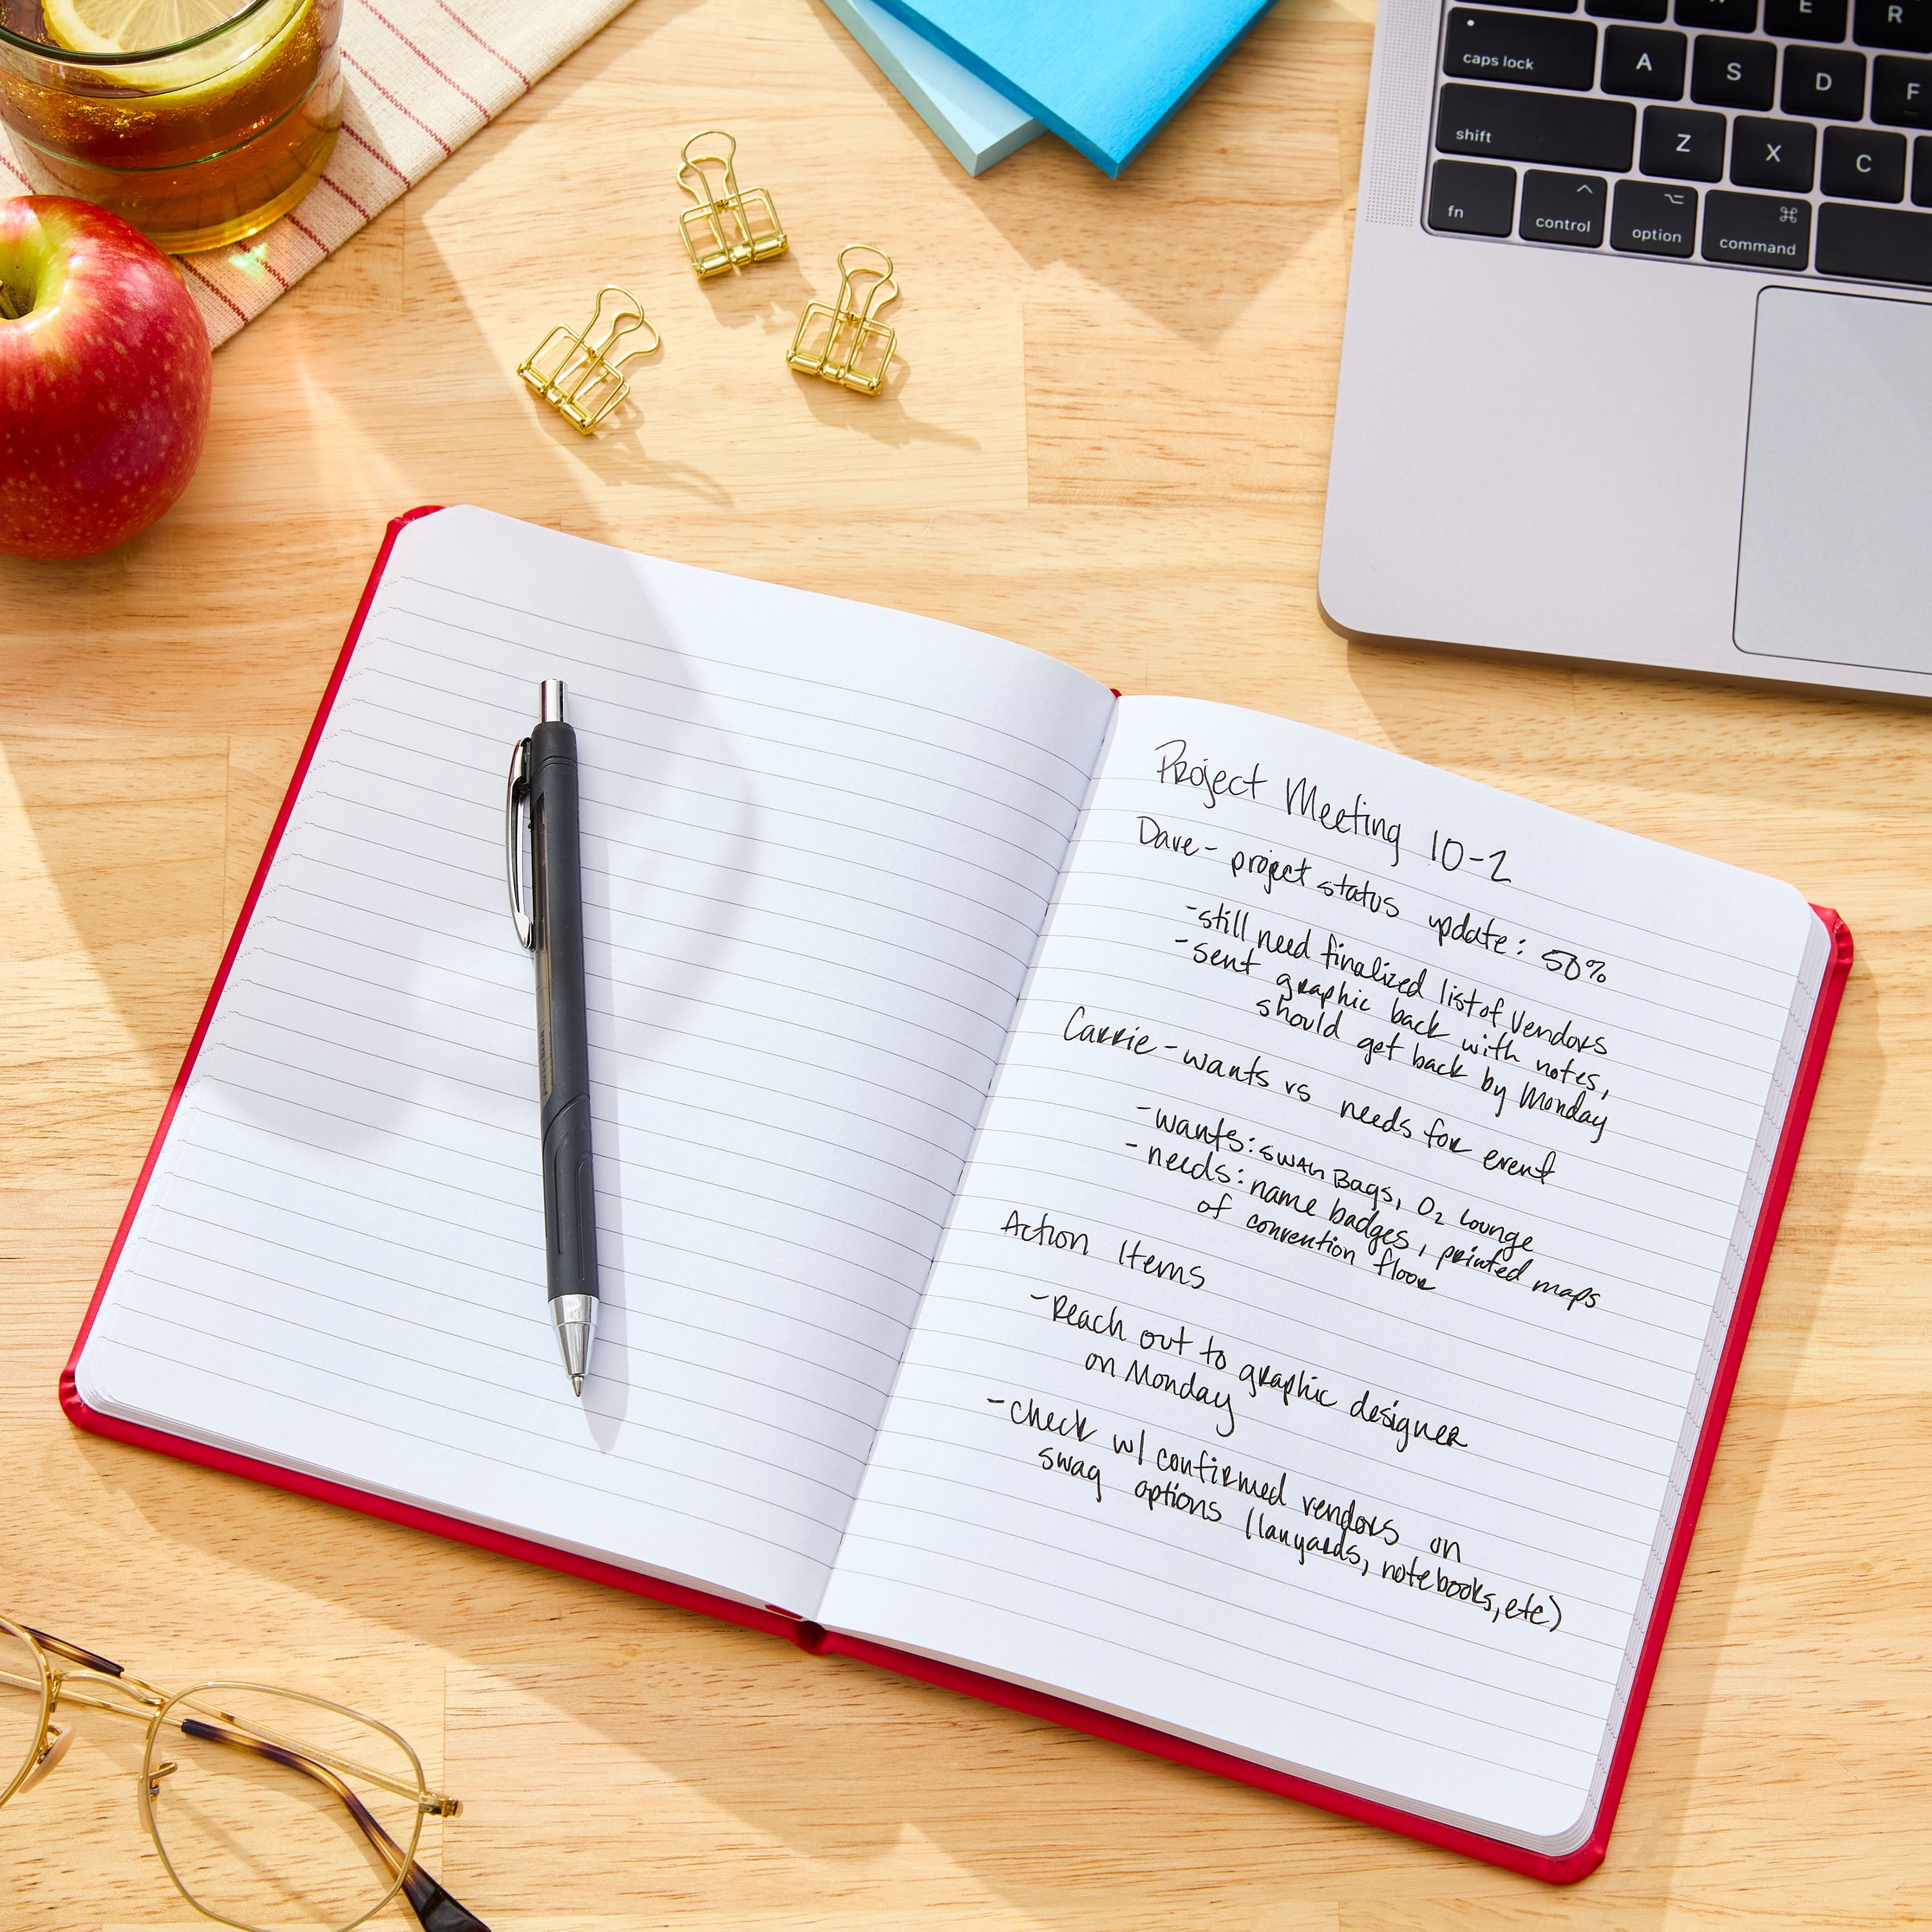 E R
caps lock A S D F
shift Z X C
fn control option command
Project Meeting 10-2
Dave - project status update: 50%
- still need finalized list of vendors
- sent graphic back with notes,
should get back by Monday
Carrie - wants vs needs for event
- wants: SWAG Bags, O2 Lounge
- needs: name badges, printed maps
of convention floor
Action Items
- Reach out to graphic designer
on Monday
- check w/ confirmed vendors on
swag options (lanyards, notebooks, etc)